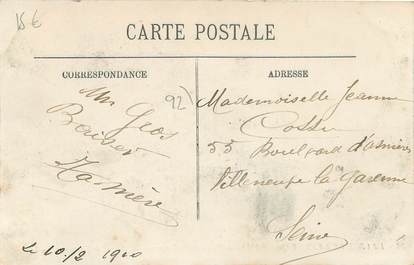 15 €
CARTE POSTALE
CORRESPONDANCE
ADRESSE
92)
Un Gros
Baiser
Ta mère
Mademoiselle Jeanne
55 Boulevard d'asnières
Villeneuve la Garenne
Seine
Le 10/2 1910